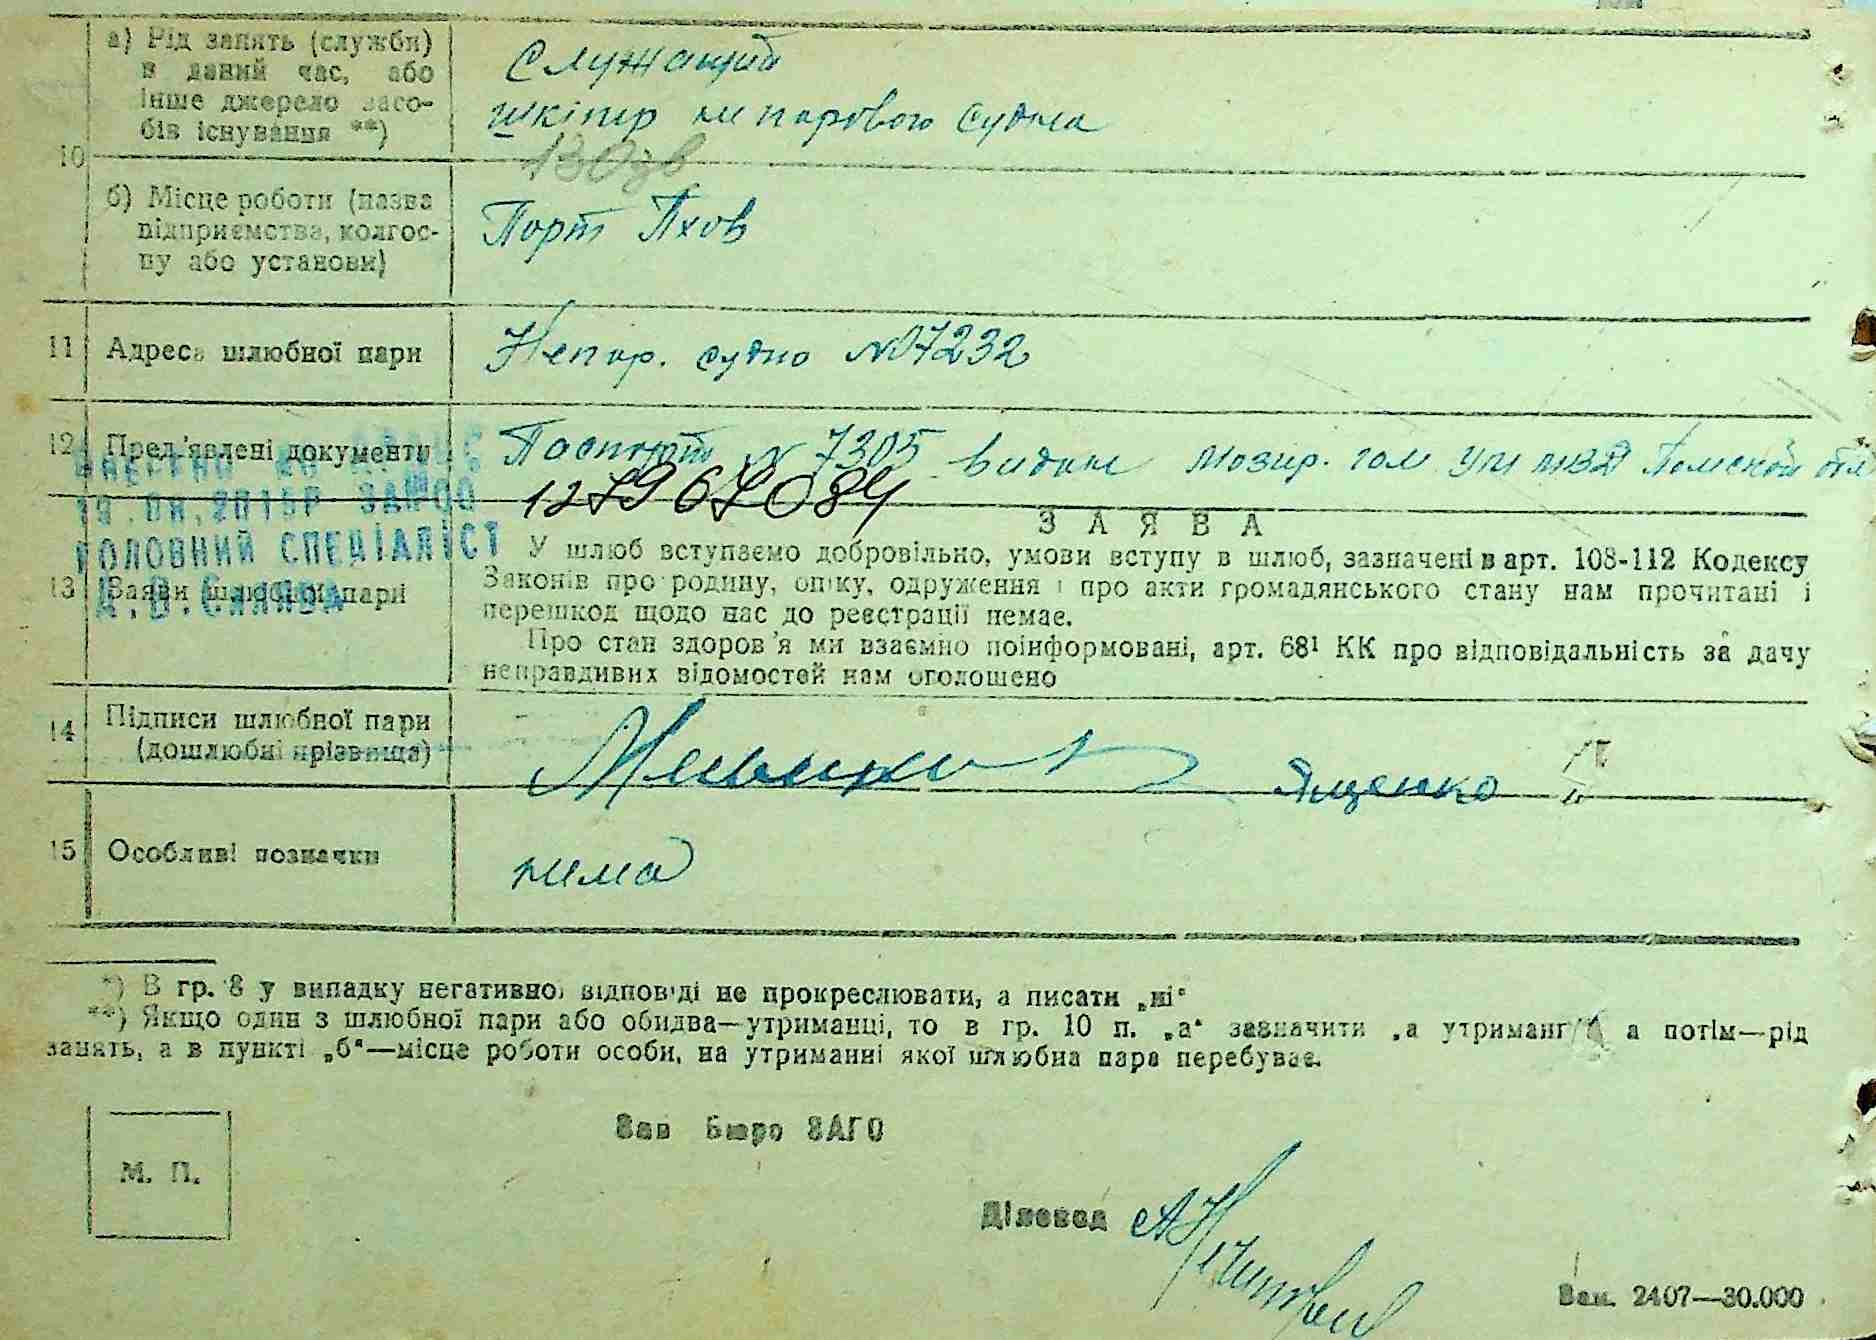 а) Рід занять (служби)
в даний час, або
інше джерело засо-
бів існування **)
Служащий
шкіпер непарового судна
10
б) Місце роботи (назва
підприємства, колгос-
пу або установи)
Порт Пхов
11 Адреса шлюбної пари
Непар. судно № 7232
12 Пред'явлені документи
Паспорт № 7305 видан Мозир.
127967084
ВНЕСЕНО ДО
ГОЛОВНИЙ СПЕЦІАЛІСТ
13 Заяви шлюбної пари
ЗАЯВА
У шлюб вступаємо добровільно, умови вступу в шлюб, зазначені в арт. 108-112 Кодексу
Законів про родину, опіку, одруження і про акти громадянського стану нам прочитані і
перешкод щодо нас до реєстрації немає.
Про стан здоров'я ми взаємно поінформовані, арт. 68¹ КК про відповідальність за дачу
неправдивих відомостей нам оголошено
14 Підписи шлюбної пари
(дошлюбні прізвища)
Ященко
15 Особливі позначки
нима
*) В гр. 8 у випадку негативної відповіді не прокреслювати, а писати „ні“
**) Якщо один з шлюбної пари або обидва—утриманці, то в гр. 10 п. „а“ зазначити „а утриманг а потім—рід
занять, а в пункті „б“—місце роботи особи, на утриманні якої шлюбна пара перебуває.
М. П.
Зав Бюро ЗАГС
Діловод
Зам. 2407—30.000